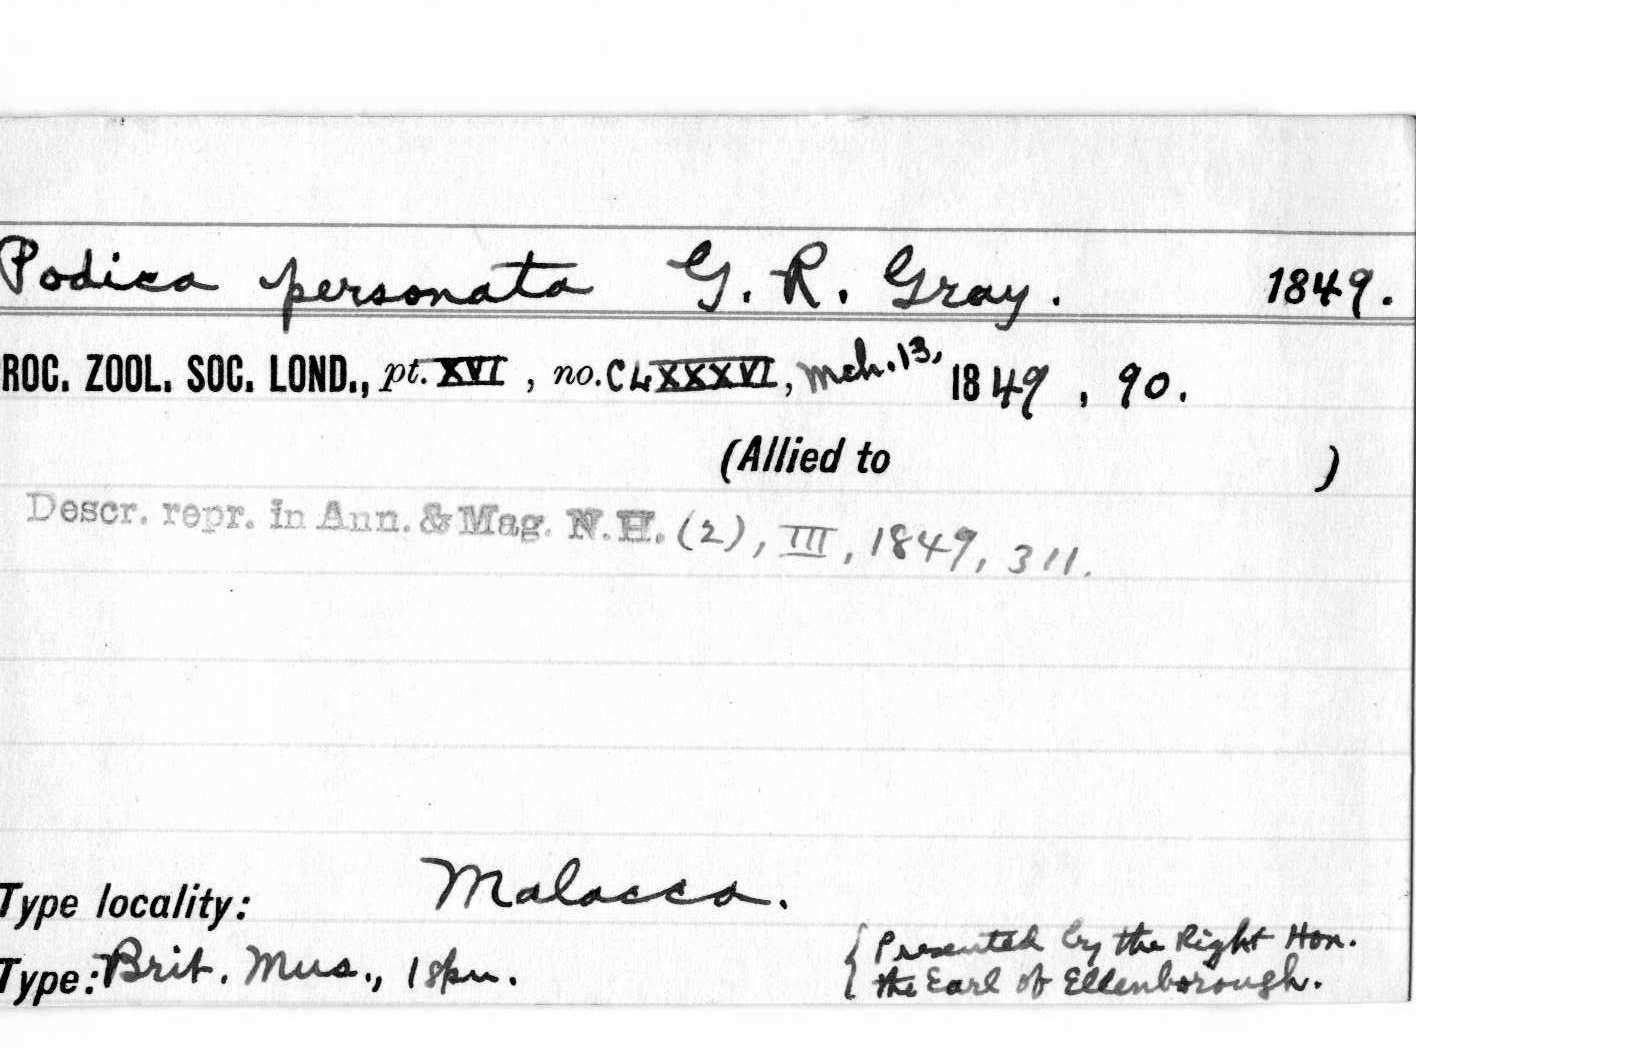 Podica personata G. R. Gray. 1849.
ROC. ZOOL. SOC. LOND., pt. XVI, no. CLXXXVI, Mch. 13, 1849, 90.
(Allied to )
Descr. repr. in Ann. & Mag. N.H. (2), III, 1849, 311.
Type locality: Malacca.
Type: Brit. Mus., 1 spm. {Presented by the Right Hon.
the Earl of Ellenborough.